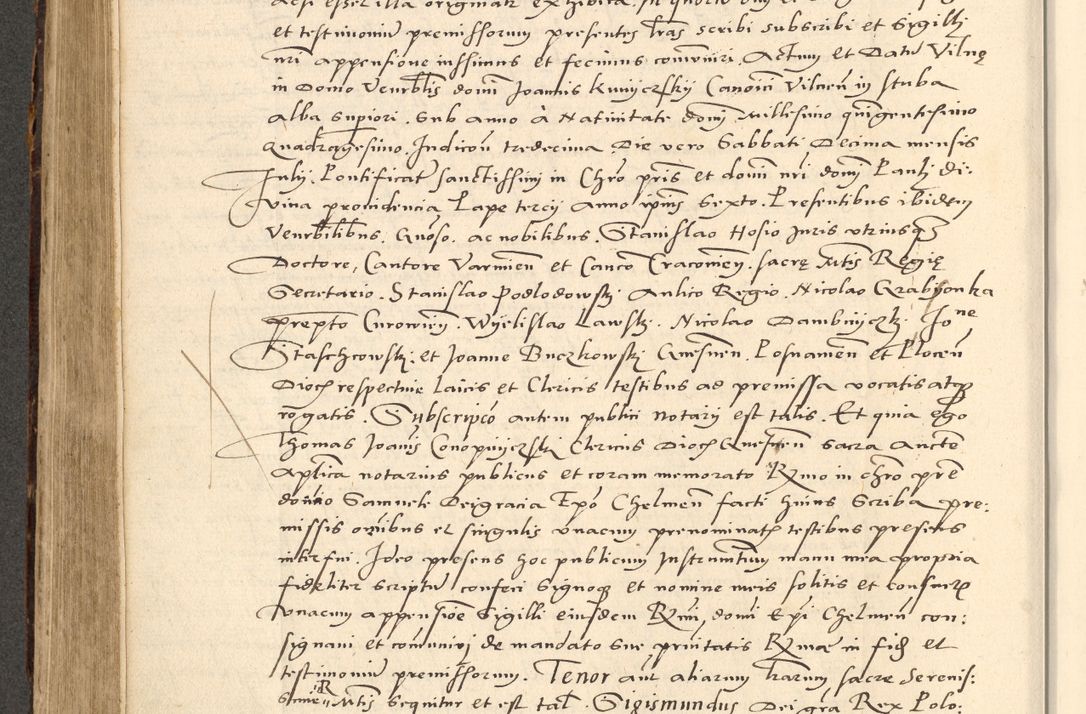 et testimonium premissorum presentes lras scribi subscribi et Sigilli
nri appensione iussimus et fecimus communiri. Actum et Datum Vilnę
in Domo Venerblis domi Joannis Kunyczsky Canoici Vilnen in stuba
alba supiori. Sub anno à Natiuitate domi Millesimo quingentesimo
Quadragesimo. Indicon tredecima. Die vero Sabbati Decima mensis
Julij. Pontificatu sanctissimi in Chro pris et domi nri domi Pauli di:
uina prouidencia Pape tercij Anno ipius Sexto. Presentibus ibidem
Venerbilibus. Gnoso. ac nobilibus. Stanislao Hosio Juris vtriusqz
Doctore, Cantore Varmien et Canco Cracouien. sacrę Mtis Regię
Secretario. Stanislao Podlodowskj Aulico Regio. Nicolao Grabyonka
prepto Curowien. Wyelislao Lawskj. Nicolao Dambnyczkj. Jo ne
Staschcowskj. et Joanne Buczkowskj Gnesnen. Posnanien et Plocen
Dioch respectiue laicis et Clericis testibus ad premissa vocatis atqz
rogatis. Subscripco autem publici Notarij est talis. Et quia ego
Thomas Joanis Conopnyczskj Clericus Dioch Gnesnen Sacra Aucte
Aplica notarius publicus et coram memorato Rmo in chro pre
domino Samuele Dei gracia Epo Chelmen facti huius Scriba pre:
missis omibus et singulis vnacum prenominatis testibus presens
interfui. Ideo presens hoc publicum Instrumtum manu mea propria
fideliter scriptum confeci Signoqz et nomine meis solitis et consuetis
vnacum appensioe Sigilli eiusdem Rmi, domi Epi Chelmen con:
signaui et comuniui de mandato sue prnitatis Rme in fidem et
testimonium premissorum. Tenor aut aliarum lrarum sacre Serenis:
sime R Mtis Sequitur et est tal. Sigismundus Dei gra Rex Polo: